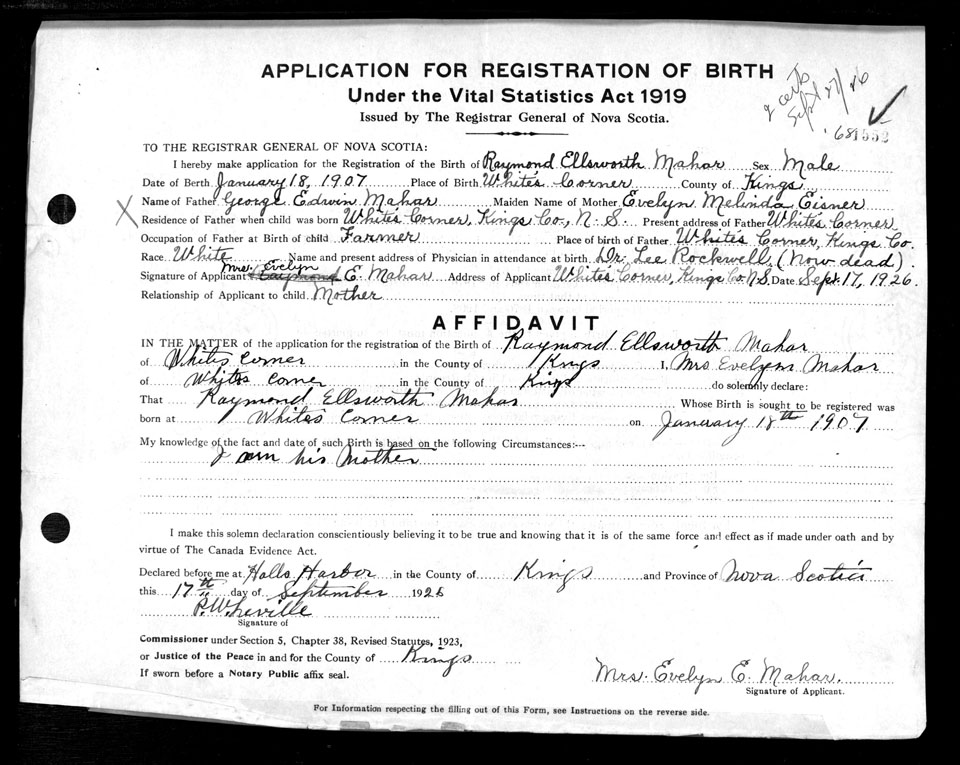 APPLICATION FOR REGISTRATION OF BIRTH
Under the Vital Statistics Act 1919
Issued by The Registrar General of Nova Scotia.
2 certs
Sept 27/26
TO THE REGISTRAR GENERAL OF NOVA SCOTIA:
I hereby make application for the Registration of the Birth of Raymond Ellsworth Mahar Sex Male
Date of Berth January 18, 1907 Place of Birth White's Corner County of Kings
X Name of Father George Edwin Mahar Maiden Name of Mother Evelyn Melinda Eisner
Residence of Father when child was born White's Corner, Kings Co., N. S. Present address of Father White's Corner
Occupation of Father at Birth of child Farmer Place of birth of Father White's Corner, Kings Co.
Race White Name and present address of Physician in attendance at birth Dr. Lee Rockwell, (Now dead).
Mrs. Evelyn
Signature of Applicant Raymond E. Mahar Address of Applicant White's Corner, Kings Co. N S. Date Sept. 17, 1926.
Relationship of Applicant to child Mother
AFFIDAVIT
IN THE MATTER of the application for the registration of the Birth of Raymond Ellsworth Mahar
of Whites Corner in the County of Kings I, Mrs Evelyn Mahar
of Whites Corner in the County of Kings do solemnly declare:
That Raymond Ellsworth Mahar Whose Birth is sought to be registered was
born at Whites Corner on January 18th 1907
My knowledge of the fact and date of such Birth is based on the following Circumstances:--
I am his Mother
I make this solemn declaration conscientiously believing it to be true and knowing that it is of the same force and effect as if made under oath and by
virtue of The Canada Evidence Act.
Declared before me at Halls Harbor in the County of Kings and Province of Nova Scotia
this 17th day of September 1926
P.W. Neville
Signature of
Commissioner under Section 5, Chapter 38, Revised Statutes, 1923,
or Justice of the Peace in and for the County of Kings
If sworn before a Notary Public affix seal.
Mrs. Evelyn E. Mahar.
Signature of Applicant.
For Information respecting the filling out of this Form, see Instructions on the reverse side.